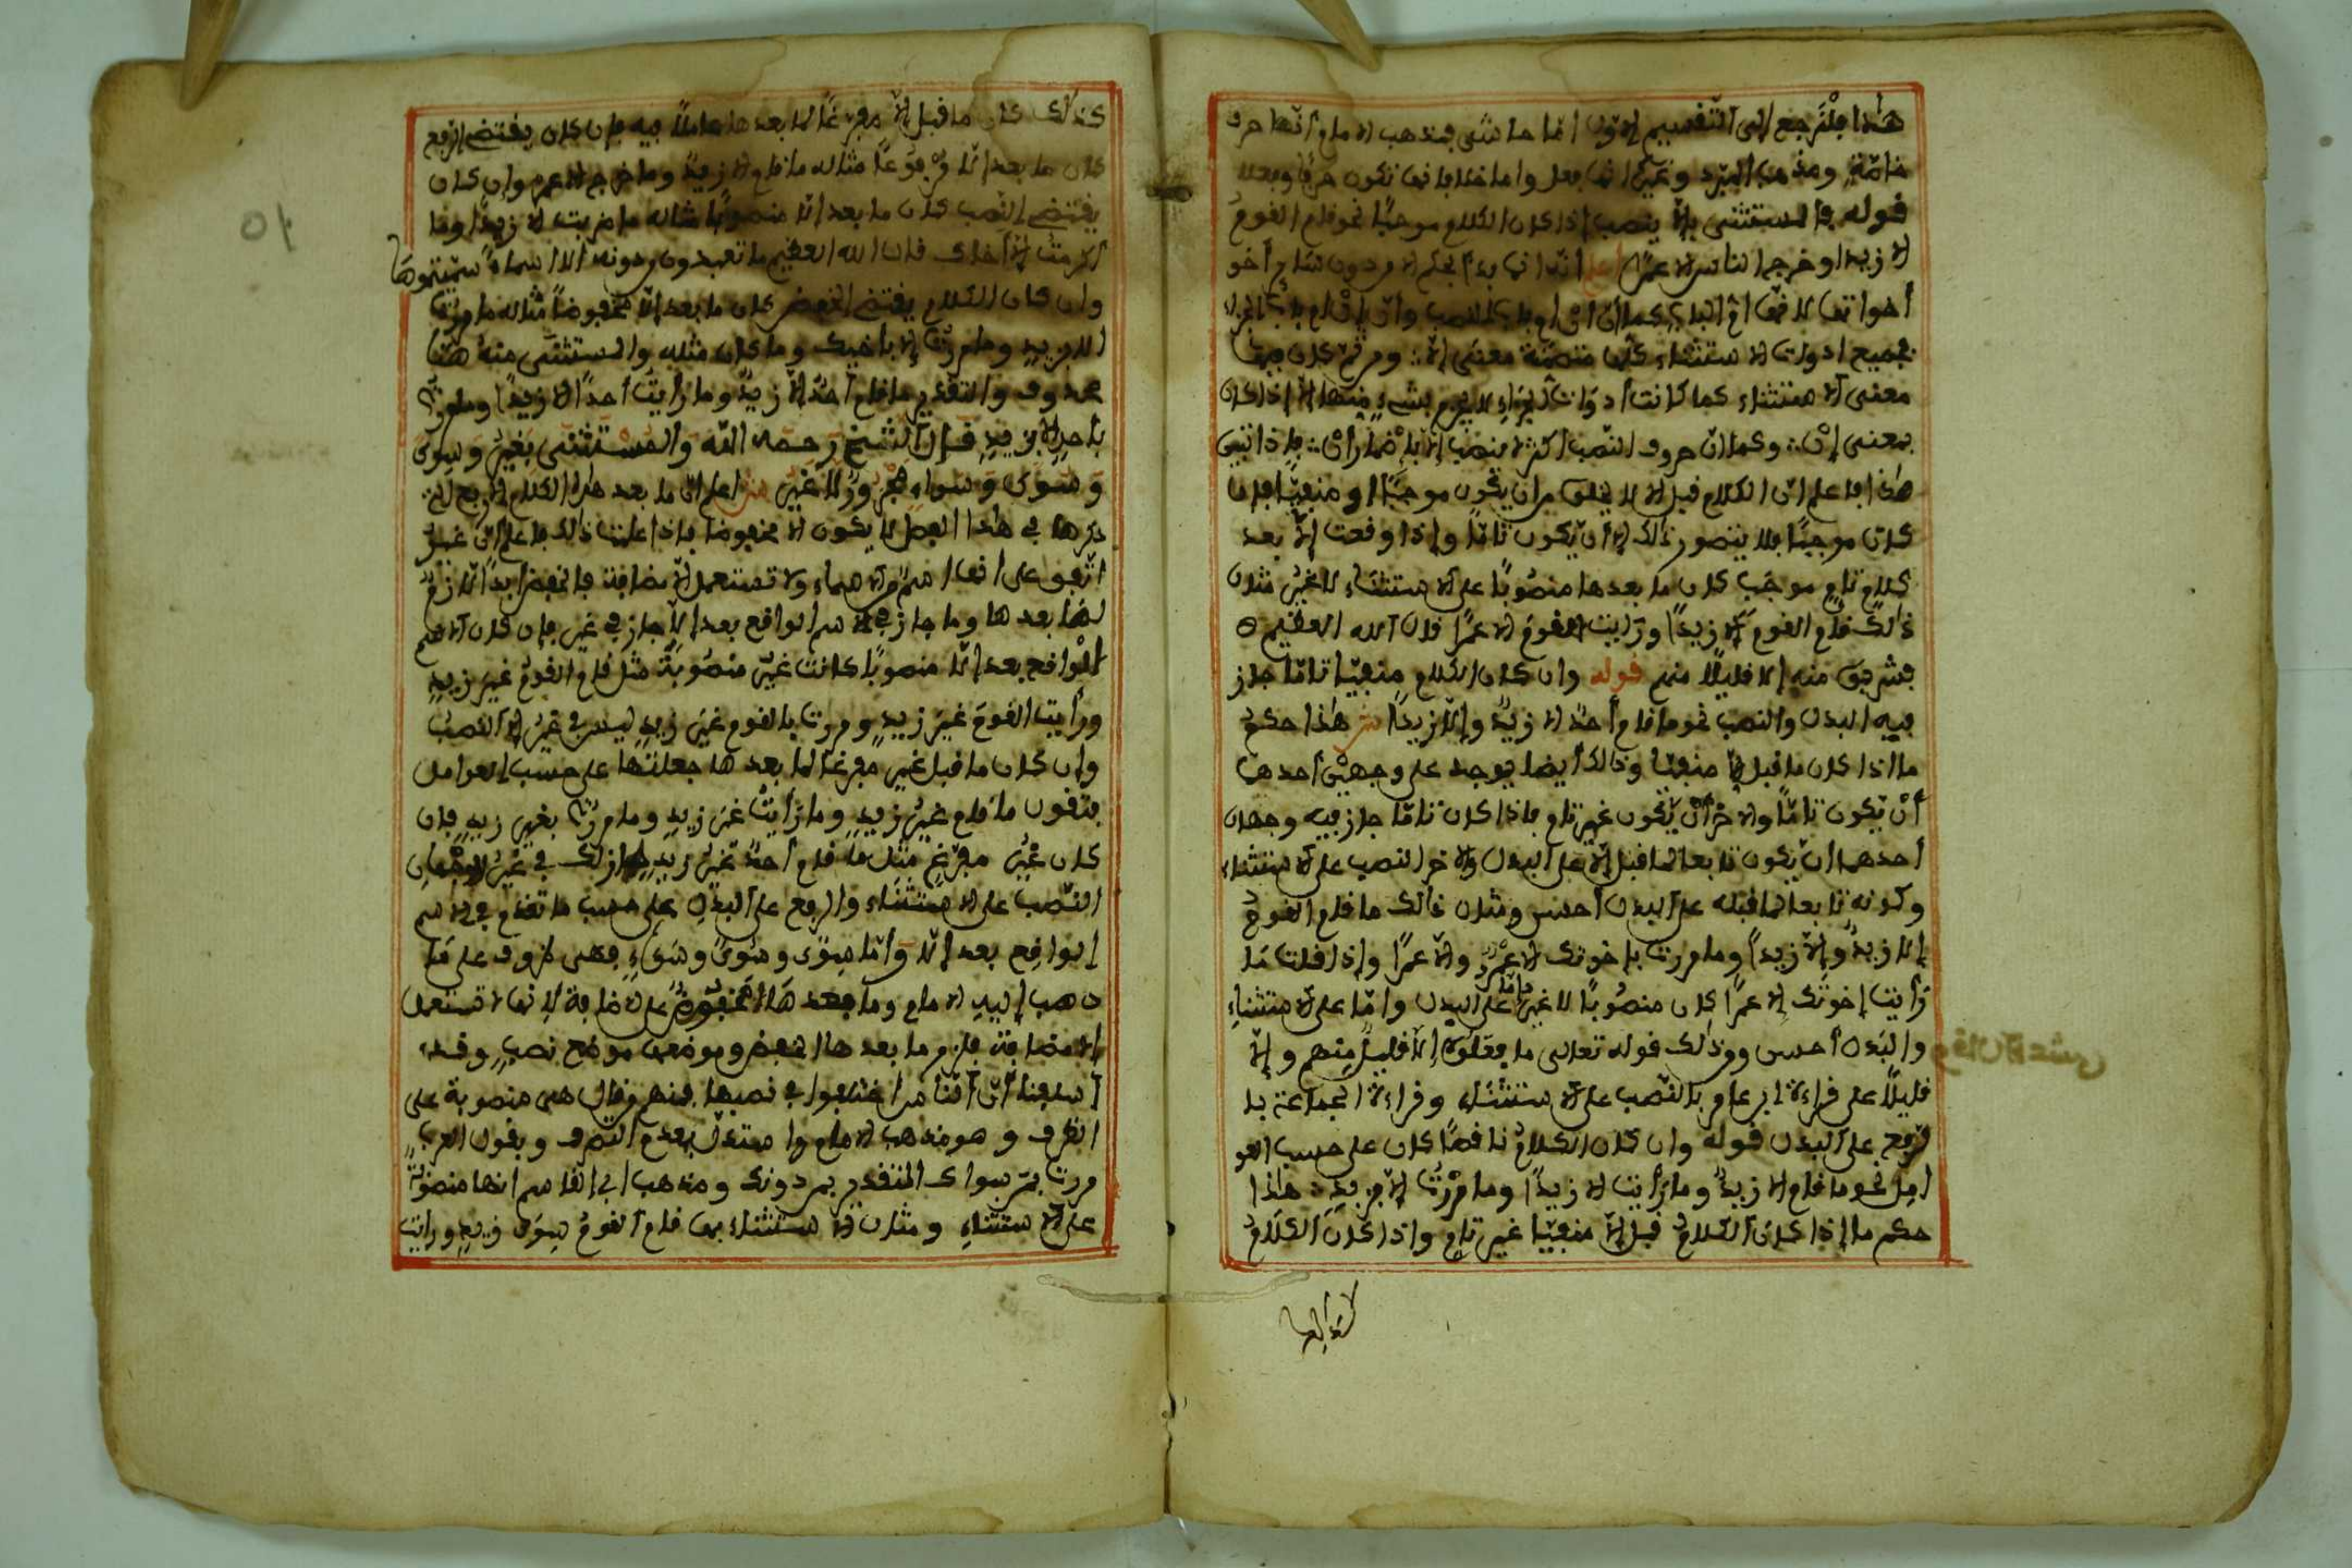 هذا فلنرجع إلى التقسيم الأول أما حاشى فمذهب الإمام أنها حرف
خاصّة ومذهب المبرد وغيره أنها فعل وأما خلا فإنها تكون حرفا وفعلا
قوله فالمستثنى بإلّا ينصب إذا كان الكلام موجبًا نحو قام القومُ
إلا زيدا وخرج الناس إلا عمرًا اعلم أنه إنما بدأ بحكم إلا من دون سائر أخو
أخواتها لأنها أمّ الباب كما أنّ أنْ أم باب النصب وأن إنْ أم باب الجزاء
فجميع أدوات الاستثناء كأن متضمّنة معنى إلّا ومن ثم كان فيها
معنى الاستثناء كما كانت أدوات الجزاء لا يجزم بشيء منها إلا إذا كان
بمعنى إنْ وكما أن حروف النصب أكثرها ينصب إلا بإضمار أن فإذا تبين
هذا فاعلم أن الكلام قبل إلا لا يخلو من أن يكون موجبًا أو منفيّا فإن
كان موجبًا فلا يتصور ذلك إلا أن يكون تامّا وإذا وقعت إلّا بعد
كلام تامٍ موجَب كان ما بعدها منصوبًا على الاستثناء لا غيرُ مثال
ذلك قام القوم إلا زيدًا ورأيت القومَ إلا عمرًا قال الله العظيم
فشربوا منه إلا قليلًا منهم قوله وإن كان الكلام منفيّا تامّا جاز
فيه البدل والنصب نحو ما قام أحدٌ إلا زيدٌ وإلّا زيدًا ش هذا حكم
ما إذا كان ما قبل إلا منفيّا وذلك أيضا يوجد على وجهيْن أحدهما
أنْ يكون تامّا والآخر أنْ يكون غير تام فإذا كان تامّا جاز فيه وجهان
أحدهما أن يكون تابعا لما قبل إلّا على البدل والآخر النصب على الاستثناء
وكونه تابعا لما قبله على البدل أحسن ومثال ذلك ما قام القومُ
إلا زيدٌ وإلّا زيدًا وما مررت بإخوتك إلا عمرٍو وإلّا عمرًا وإذا قلت ما
رأيت إخوتك إلا عمرًا كان منصوبًا لا غير إما على البدل وإمّا على الاستثناءِ
والبدل أحسن ومن ذلك قوله تعالى ما فعلوه إلّا قليلٌ منهم وإلّا
قليلًا على قراءة ابن عامر بالنّصب على الاستثناء وقراءة الجماعة بال
لرفع على البدل قوله وإن كان الكلامُ ناقصًا كان على حسب العو
امل نحو ما قام إلا زيدٌ وما رأيت إلا زيدًا وما مررتُ إلّا بزيدٍ هذا
حكم ما إذا كان الكلامُ قبل إلّا منفيّا غير تام وإذا كان الكلامُ
كذلك كان ما قبل إلّا مفرغًا لما بعدها عاملًا فيه فإن كان يقتضي الرفع
كان ما بعد إلّا مرفوعًا مثاله ما قام إلا زيدٌ وما خرج إلا عمرو وإن كان
يقتضي النصب كان ما بعد إلّا منصوبًا مثاله ما ضربت إلا زيدًا وما
أكرمتُ إلا أخاك قال الله العظيم ما تعبدون من دونه إلا أسماءً سمّيتموها
وإن كان الكلام يقتضي الخفض كان ما بعد إلّا مخفوضًا مثاله ما مررت
إلا بزيدٍ وما مررتُ إلا بأخيك وما كان مثله والمستثنى منهُ هنا
محذوف والتقدير ما قام أحدٌ إلّا زيدٌ وما رأيت أحدًا إلّا زيدًا وما مررت
بأحدٍ إلا بزيدٍ قال الشيخ رحمه الله والمستثنى بغيرٍ وسِوَى
وسُوَى وسواءٍ مجرورٌ لا غيرُ ش اعلم أن ما بعد هذا الكلام الأربع التي
ذكرها في هذا الفصل لا يكون إلا مخفوضا فإذا علمت ذلك فاعلم أن غير
اتّفق على أنها اسمٌ من الأسماء ولا تستعمل إلّا مضافة فالخفض أبدًا لازمٌ
لما بعدها وما جاز في الاسم الواقع بعد إلّا جاز في غير فإن كان الاسم
الواقع بعد إلّا منصوبًا كانت غير منصُوبةً مثل قام القومُ غيرَ زيدٍ
ورأيت القومَ غيرَ زيدٍ ومررت بالقوم غيرَ زيدٍ ليس في غير إلا النصبُ
وإن كان ما قبل غير مفرغًا لما بعدها جعلتها على حسب العوامل
فتقول ما قام غيرُ زيدٍ وما رأيتُ غيرَ زيدٍ وما مررتُ بغيرِ زيدٍ فإن
كان غيرَ مفرّغٍ مثل ما قام أحدٌ غيرُ زيدٍ جاز لك في غيرٍ الوجهان
النّصب على الاستثناء والرفع على البدلِ على حسب ما تقدّم في الاسم
الواقع بعد إلّا وأمّا سِوًى وسُوًى وسَواءٍ فهى ظروف على ما
ذهب إليه الإمام وما بعدها مخفوضٌ على الإضافة لأنها لا تستعمل
إلا مضافة فلزم ما بعدها الخفض وموضعها موضع نصبٍ وقد
أسلفنا أنّ الناس اختلفوا في نصبها فمنهم من قال هى منصوبة على
الظرف وهو مذهب الإمام واستدل بعدم التصرف وبقول العرب
مررت بمن سواك المتقدير بمن دونك ومذهب أبي القاسم أنها منصوبةٌ
على الاستثناءِ ومثال الاستثناء بها قام القومُ سِوَى زيدٍ ورأيت